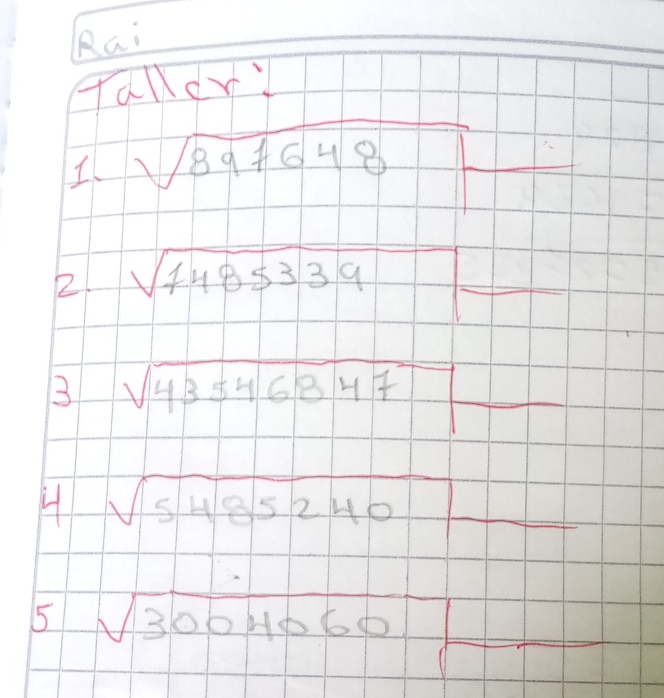 Rai
Taller:
1. √897648
2. √1485339
3 √43546847
4 √5485240
5 √3004060